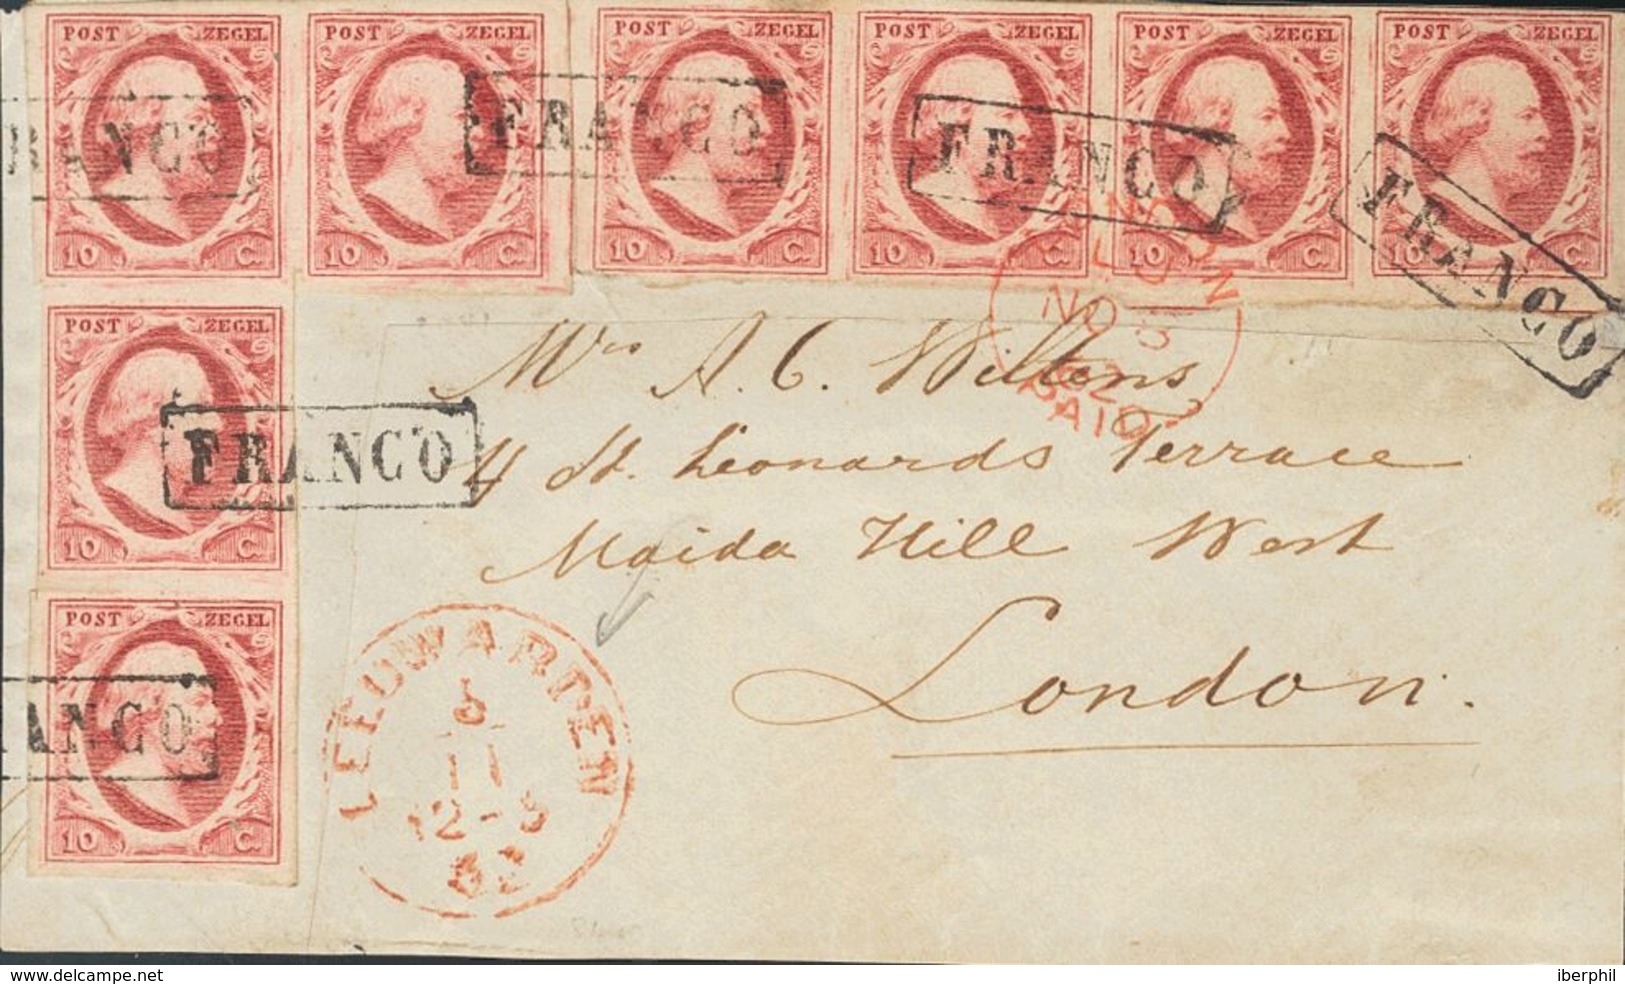 POST ZEGEL POST ZEGEL POST ZEGEL POST ZEGEL POST ZEGEL POST ZEGEL
RANCO FRANCO FRANCO FRANCO
10 C. 10 C. 10 C. 10 C. 10 C. 10 C.
LONDON
NO
62
PAID
Mrs A. C. Willens
4 St. Leonards Terrace
Maida Hill West
London.
POST ZEGEL
FRANCO
10 C.
POST ZEGEL
ANCO
10 C.
LEEUWARDEN
11
12-3
62
www.delcampe.net
iberphil